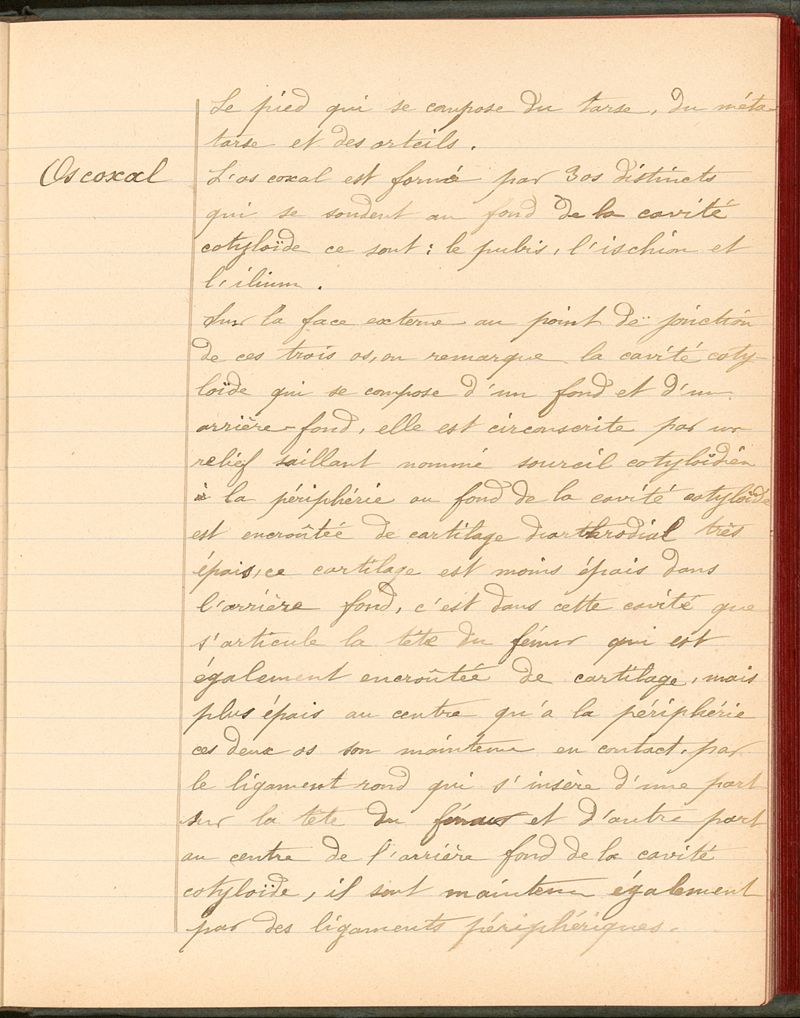 Le pied qui se compose du tarse, du méta-
tarse et des orteils.
Os coxal
L'os coxal est formé par 3 os distincts
qui se soudent au fond de la cavité
cotyloïde ce sont : le pubis, l'ischion et
l'ilium.
Sur la face externe au point de jonction
de ces trois os, on remarque la cavité coty-
loïde qui se compose d'un fond et d'un
arrière-fond, elle est circonscrite par un
relief saillant nommé sourcil cotyloïdien
à la périphérie au fond de la cavité cotyloïde
est encroûtée de cartilage diarthrodial très
épais, ce cartilage est moins épais dans
l'arrière fond, c'est dans cette cavité que
s'articule la tête du fémur qui est
également encroûtée de cartilage, mais
plus épais au centre qu'a la périphérie
ces deux os son maintenu en contact, par
le ligament rond qui s'insère d'une part
sur la tete du fémur et d'autre part
au centre de l'arrière fond de la cavité
cotyloïde, il sont maintenu également
par des ligaments périphériques.